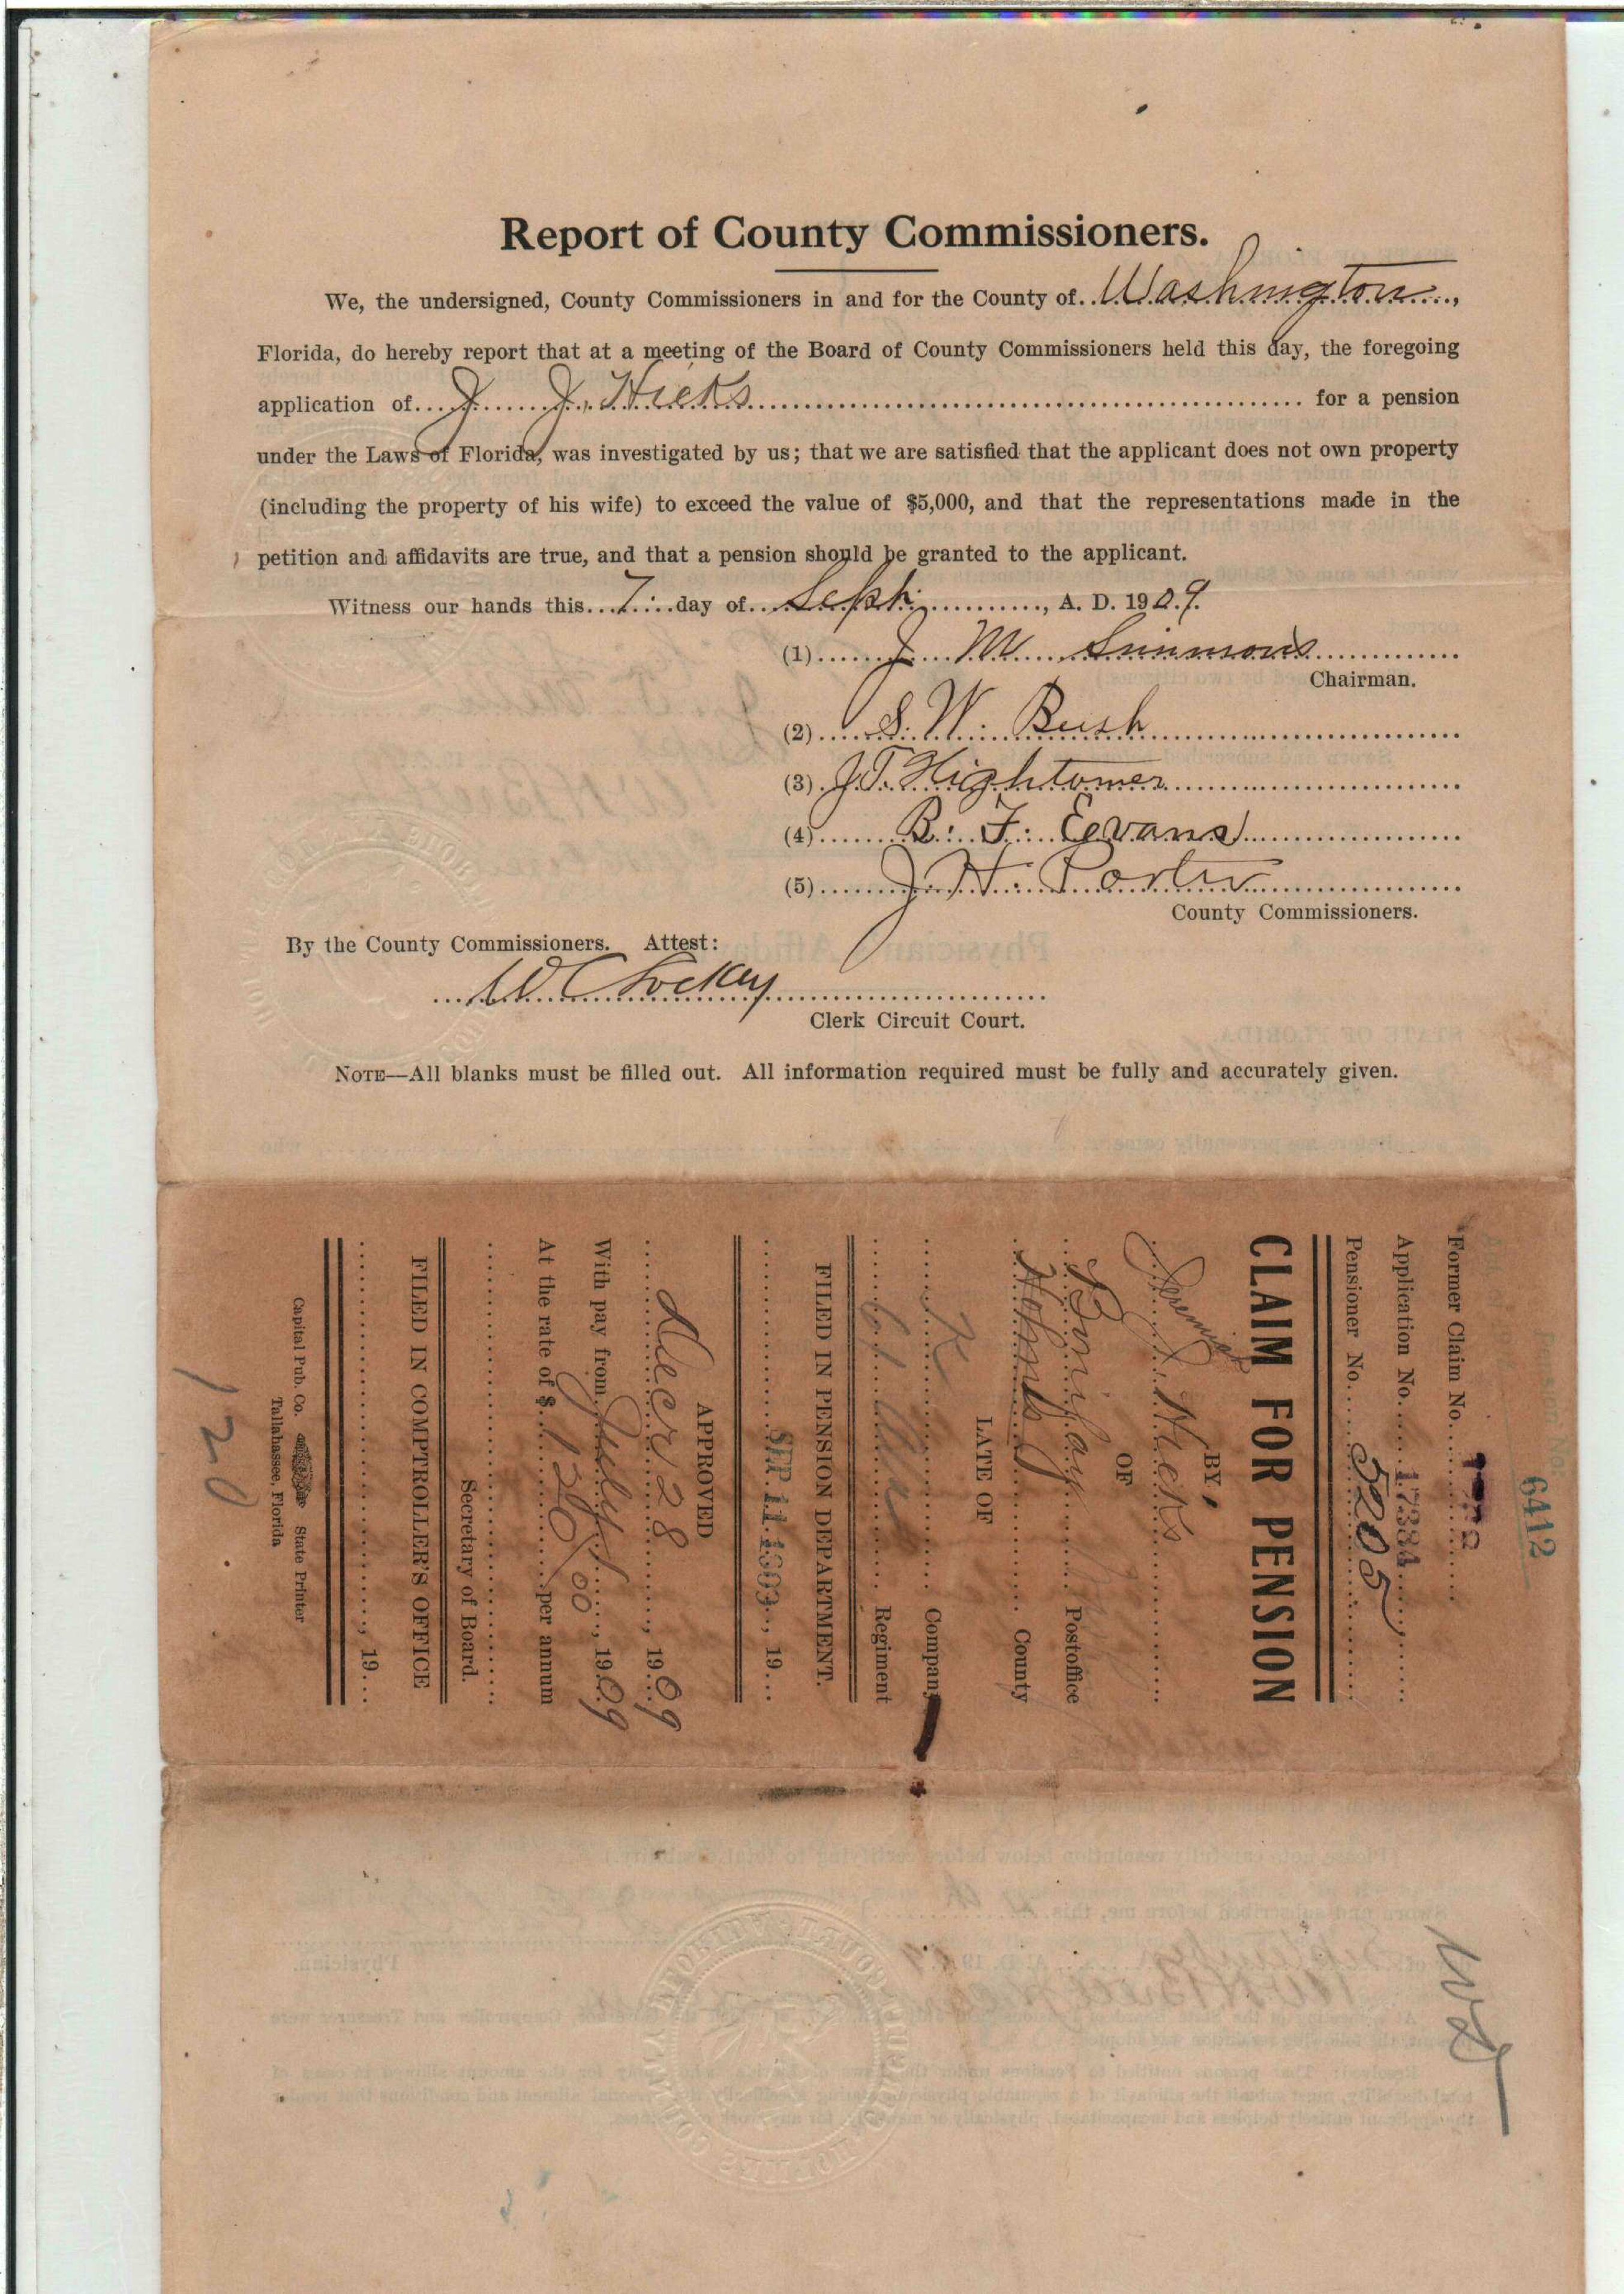 Report of County Commissioners.
We, the undersigned, County Commissioners in and for the County of Washington,
Florida, do hereby report that at a meeting of the Board of County Commissioners held this day, the foregoing
application of J. J. Hicks for a pension
under the Laws of Florida, was investigated by us; that we are satisfied that the applicant does not own property
(including the property of his wife) to exceed the value of $5,000, and that the representations made in the
petition and affidavits are true, and that a pension should be granted to the applicant.
Witness our hands this 7 day of Sept., A. D. 1909.
(1) J M Simmons
Chairman.
(2) S. W. Bush
(3) J.T. Hightower
(4) B. F. Eevans
(5) J. H. Porter
County Commissioners.
By the County Commissioners. Attest:
W C Lockey
Clerk Circuit Court.
NOTE—All blanks must be filled out. All information required must be fully and accurately given.
6412
Former Claim No.
Application No. 17334
Pensioner No. 5205
CLAIM FOR PENSION
BY
Jeremiah J. Hicks
OF
Bonifay Postoffice
Holmes County
LATE OF
K Company
61 Ala Regiment
FILED IN PENSION DEPARTMENT.
SEP 11 1909, 19
APPROVED
Decr 28, 1909
With pay from July 1, 1909
At the rate of $ 120/00 per annum
Secretary of Board.
FILED IN COMPTROLLER'S OFFICE
, 19
Capital Pub. Co. State Printer
Tallahassee, Florida
120